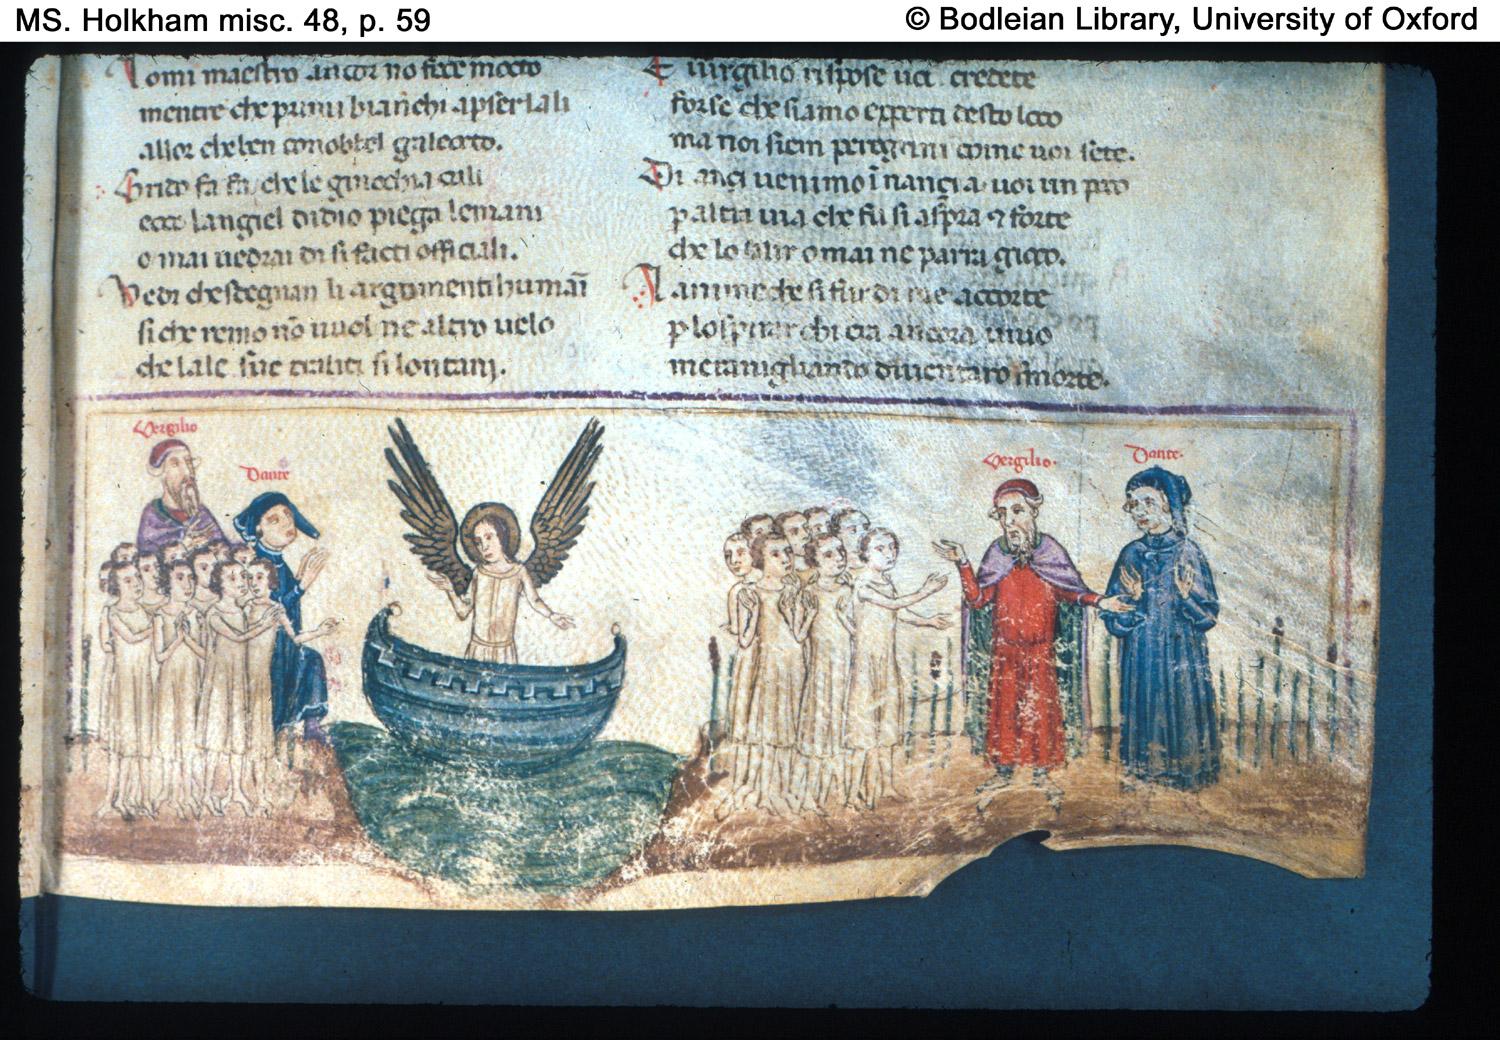 MS. Holkham misc. 48, p. 59
© Bodleian Library, University of Oxford
Lo mi maestro ancor no fece mocto
mentre che primi bianchi apser lali
allor che ben conobbel galeocto.
Grido fa fa che le ginochia cali
ecco langiel didio piega le mani
o mai vedrai di si facti officiali.
Vedi che sdegnan li argumenti humai
si che remo nō vuol ne altro velo
che lale sue tra liti si lontani.
E virgilio rispose vci credete
forse che siamo experti desto loco
ma noi siem peregrini come voi sete.
Di anci venimo īnanci a voi un poco
p altra via che fu si aspra ⁊ forte
che lo salir omai ne parra gioco.
L anime che si fur di me accorte
p lo spirar chi era ancora vivo
meravigliando diventaro smorte.
Vergilio
Dante
Vergilio.
Dante.